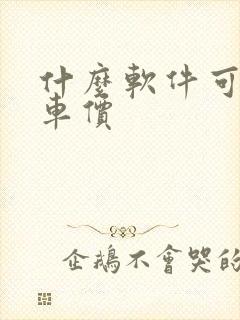 什麼軟件可
車價
企鵝不會哭的